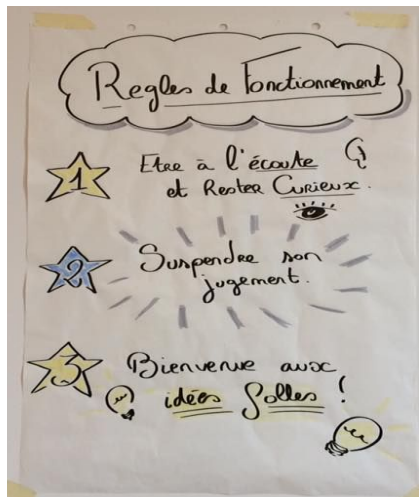 Regles de Fonctionnement
1 Etre à l'écoute
et Rester Curieux.
2 Suspendre son
jugement.
3 Bienvenue aux
idées folles !